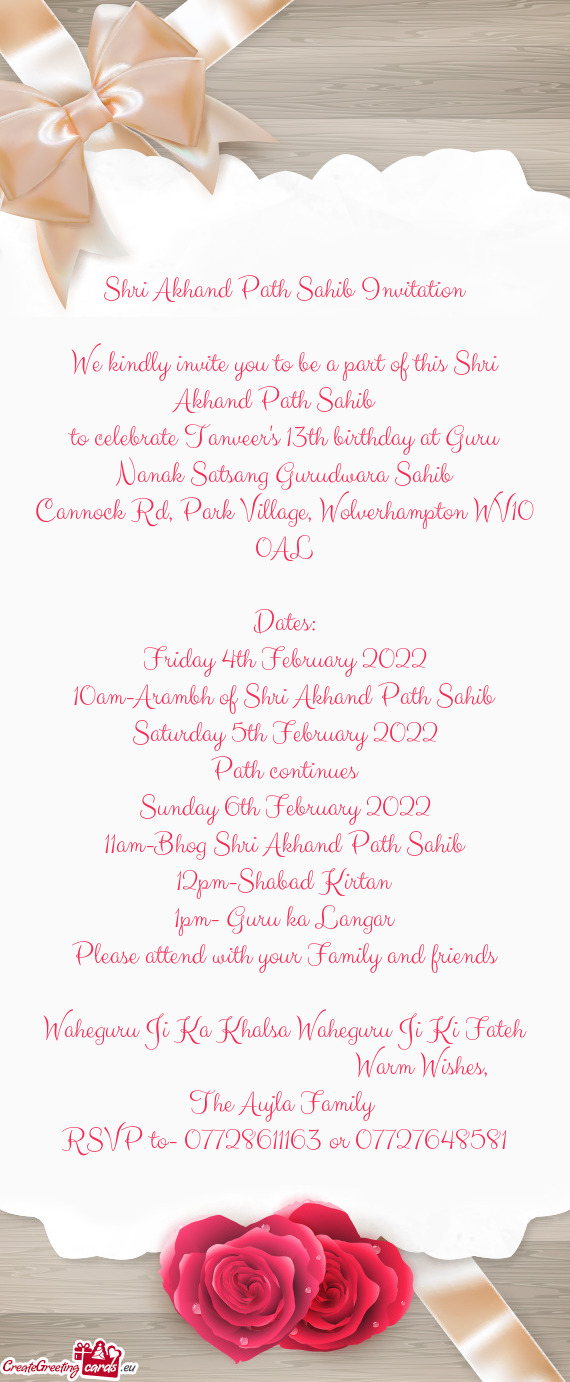 Shri Akhand Path Sahib Invitation
We kindly invite you to be a part of this Shri
Akhand Path Sahib
to celebrate Tanveer's 13th birthday at Guru
Nanak Satsang Gurudwara Sahib
Cannock Rd, Park Village, Wolverhampton WV10
0AL
Dates:
Friday 4th February 2022
10am-Arambh of Shri Akhand Path Sahib
Saturday 5th February 2022
Path continues
Sunday 6th February 2022
11am-Bhog Shri Akhand Path Sahib
12pm-Shabad Kirtan
1pm- Guru ka Langar
Please attend with your Family and friends
Waheguru Ji Ka Khalsa Waheguru Ji Ki Fateh
Warm Wishes,
The Aujla Family
RSVP to- 07728611163 or 07727648581
CreateGreeting cards.eu